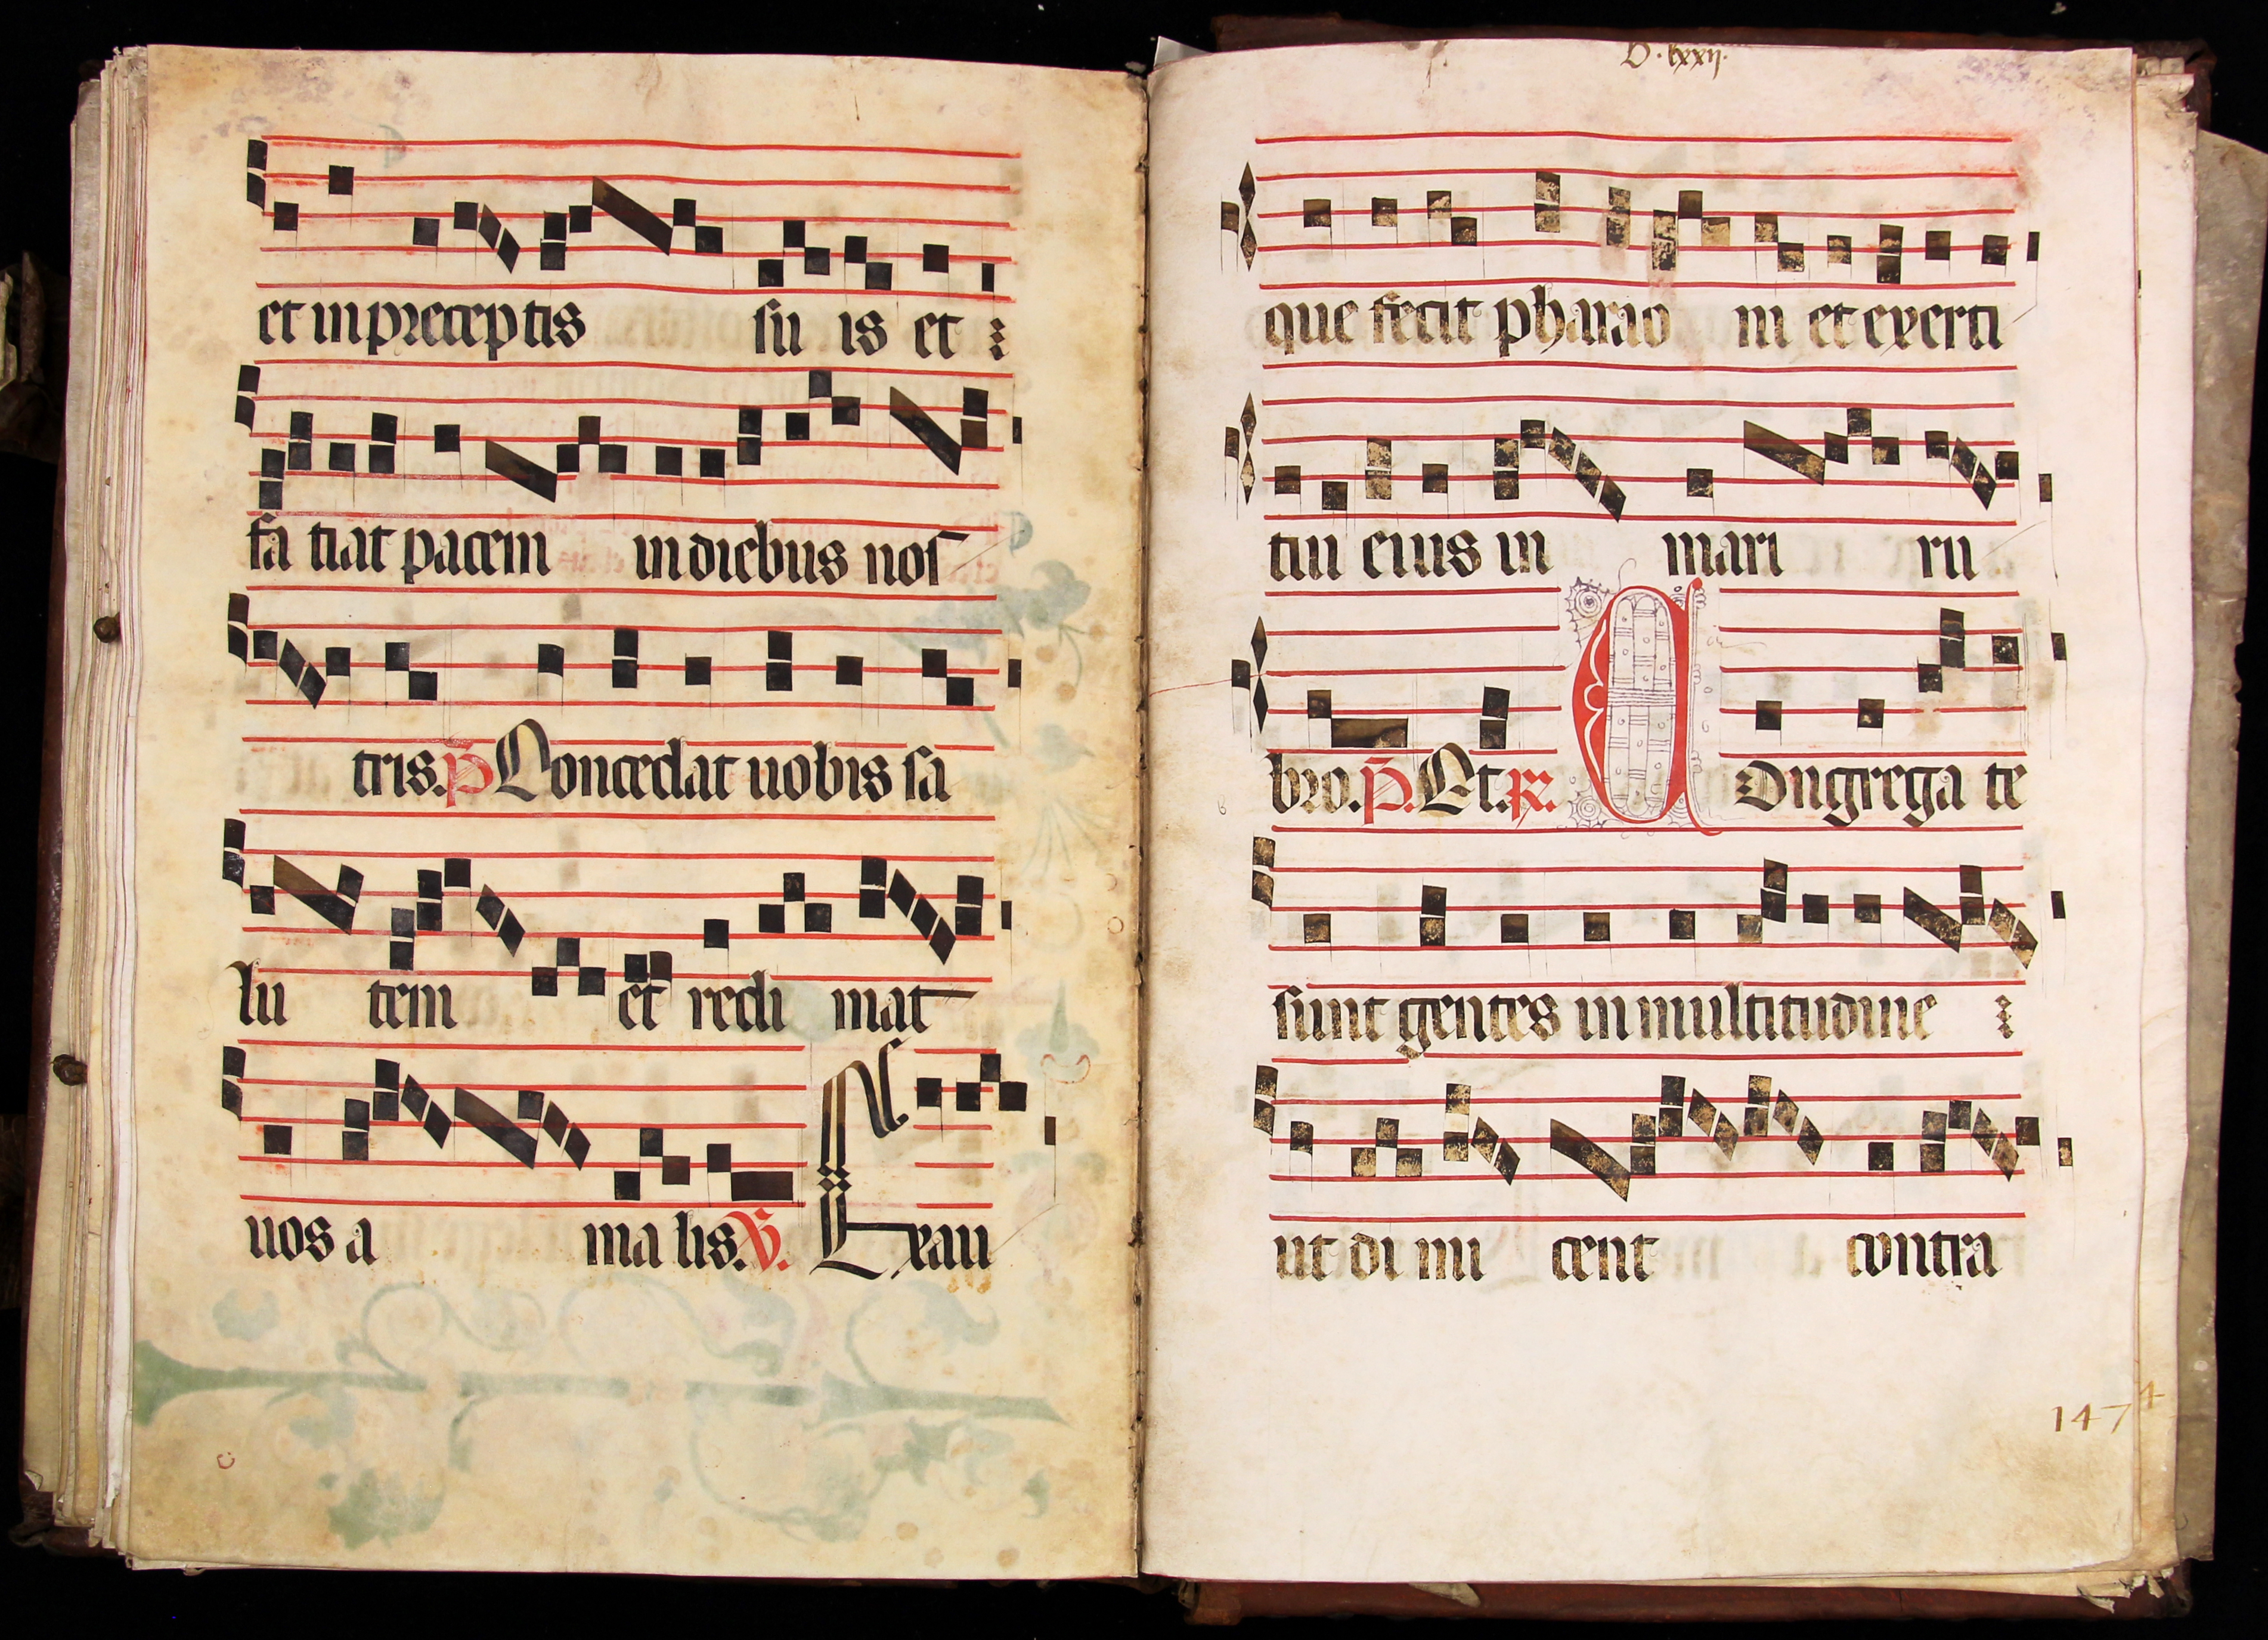 et in preceptis su is et
fa tiat pacem in diebus nos
tris. p Concedat uobis sa
lu tem et redi mat
uos a ma lis. V. Exau
D. lxxij.
que fecit pharao ni et exerti
tui eius in mari ru
bro. p. Et. R. C Ongrega te
sunt gentes in multitudine
ut di mi cent contra
147
4